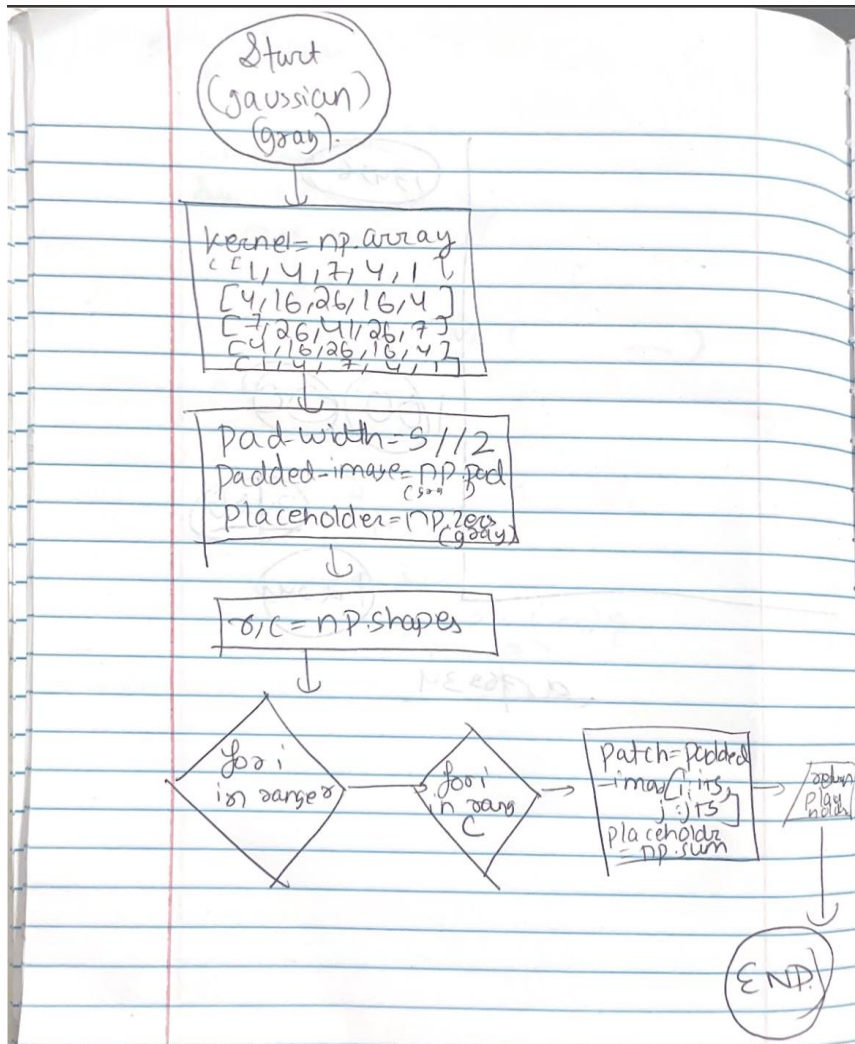 Start
(gaussian)
(gray).
Kernel= np.array
([1, 4, 7, 4, 1]
[4, 16, 26, 16, 4]
[7, 26, 41, 26, 7]
[4, 16, 26, 16, 4]
[1, 4, 7, 4, 1]
pad-width = 5 // 2
padded-image= np.pad
(gray)
Placeholder= np.zeros
(gray)
r, c = np.shapes
for i
in range r
for i
in rang
C
patch= padded
-imag[i, i+5,
j : j+5]
placeholdr
= np.sum
return
END.